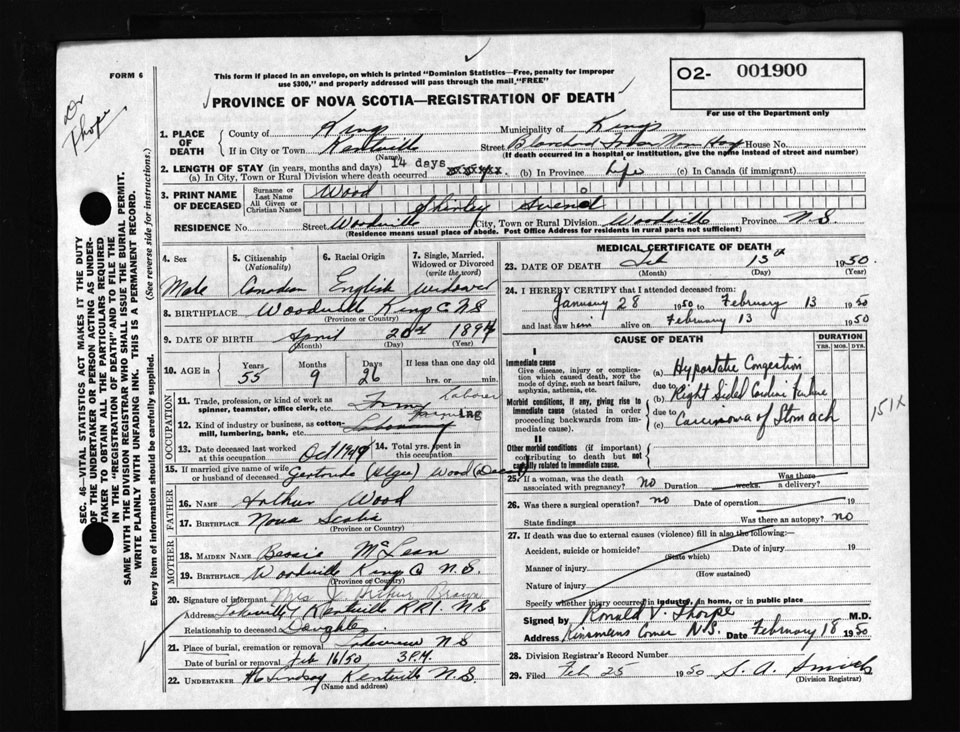 FORM 6
This form if placed in an envelope, on which is printed "Dominion Statistics—Free, penalty for improper
use $300," and properly addressed will pass through the mail "FREE"
O2- 001900
For use of the Department only
Dr
Thorpe
PROVINCE OF NOVA SCOTIA—REGISTRATION OF DEATH
SEC. 46—VITAL STATISTICS ACT MAKES IT THE DUTY
OF THE UNDERTAKER OR PERSON ACTING AS UNDER-
TAKER TO OBTAIN ALL THE PARTICULARS REQUIRED
IN THE "REGISTRATION OF DEATH" AND TO FILE THE
SAME WITH THE DIVISION REGISTRAR WHO SHALL ISSUE THE BURIAL PERMIT.
WRITE PLAINLY WITH UNFADING INK. THIS IS A PERMANENT RECORD.
Every item of information should be carefully supplied. (See reverse side for instructions.)
1. PLACE OF DEATH County of Kings Municipality of Kings
If in City or Town Kentville Street Blanchard Hosp House No.
(Name) (If death occurred in a hospital or institution, give the name instead of street and number)
2. LENGTH OF STAY (in years, months and days) 14 days
(a) In City, Town or Rural Division where death occurred (b) In Province life (c) In Canada (if immigrant)
3. PRINT NAME OF DECEASED Surname or Last Name Wood
All Given or Christian Names Shirley
RESIDENCE No. Street Woodville City, Town or Rural Division Woodville Province N S
(Residence means usual place of abode. Post Office Address for residents in rural parts not sufficient)
4. Sex 5. Citizenship (Nationality) 6. Racial Origin 7. Single, Married, Widowed or Divorced (write the word)
Male Canadian English Widower
8. BIRTHPLACE Woodville Kings C N S
(Province or Country)
9. DATE OF BIRTH April 20th 1894
(Month) (Day) (Year)
10. AGE in Years Months Days If less than one day old
55 9 26 hrs. or min.
OCCUPATION
11. Trade, profession, or kind of work as spinner, teamster, office clerk, etc. Farm laborer
12. Kind of industry or business, as cotton-mill, lumbering, bank, etc. Farming
13. Date deceased last worked at this occupation Oct 1949 14. Total yrs. spent in this occupation
15. If married give name of wife or husband of deceased Gertrude Wood
FATHER
16. Name Wood
17. Birthplace Nova Scotia
(Province or Country)
MOTHER
18. Maiden Name Bessie McLean
19. Birthplace Woodville Kings C N.S.
(Province or Country)
20. Signature of informant Mrs J. Arthur Brown
Address Lakeville Kentville RR1. N S
Relationship to deceased Daughter
21. Place of burial, cremation or removal Lakeview N S
Date of burial or removal Feb 16/50 3 P.M.
22. UNDERTAKER Lindsay Kentville N.S.
(Name and address)
MEDICAL CERTIFICATE OF DEATH
23. DATE OF DEATH Feb 13th 1950.
(Month) (Day) (Year)
24. I HEREBY CERTIFY that I attended deceased from:
January 28 1950 to February 13 1950
and last saw him alive on February 13 1950
CAUSE OF DEATH DURATION
YRS. MOS. DYS.
I
Immediate cause
Give disease, injury or complication which caused death, NOT the mode of dying, such as heart failure, asphyxia, asthenia, etc.
(a) Hypostatic Congestion
due to
Morbid conditions, if any, giving rise to immediate cause (stated in order proceeding backwards from immediate cause).
(b) Right Sided Cardiac Failure
due to
(c) Carcinoma of Stomach
151X
II
Other morbid conditions (if important) contributing to death but not causally related to immediate cause.
25. If a woman, was the death associated with pregnancy? NO Duration weeks. Was there a delivery?
26. Was there a surgical operation? no Date of operation 19
State findings Was there an autopsy? no
27. If death was due to external causes (violence) fill in also the following:—
Accident, suicide or homicide? Date of injury 19
(State which)
Manner of injury
(How sustained)
Nature of injury
Specify whether injury occurred in industry, in home, or in public place
Signed by Ronald V. Thorpe M.D.
Address Kinsmans Corner N.S. Date February 18 1950
28. Division Registrar's Record Number
29. Filed Feb 25 1950 S. A. Smith
(Division Registrar)